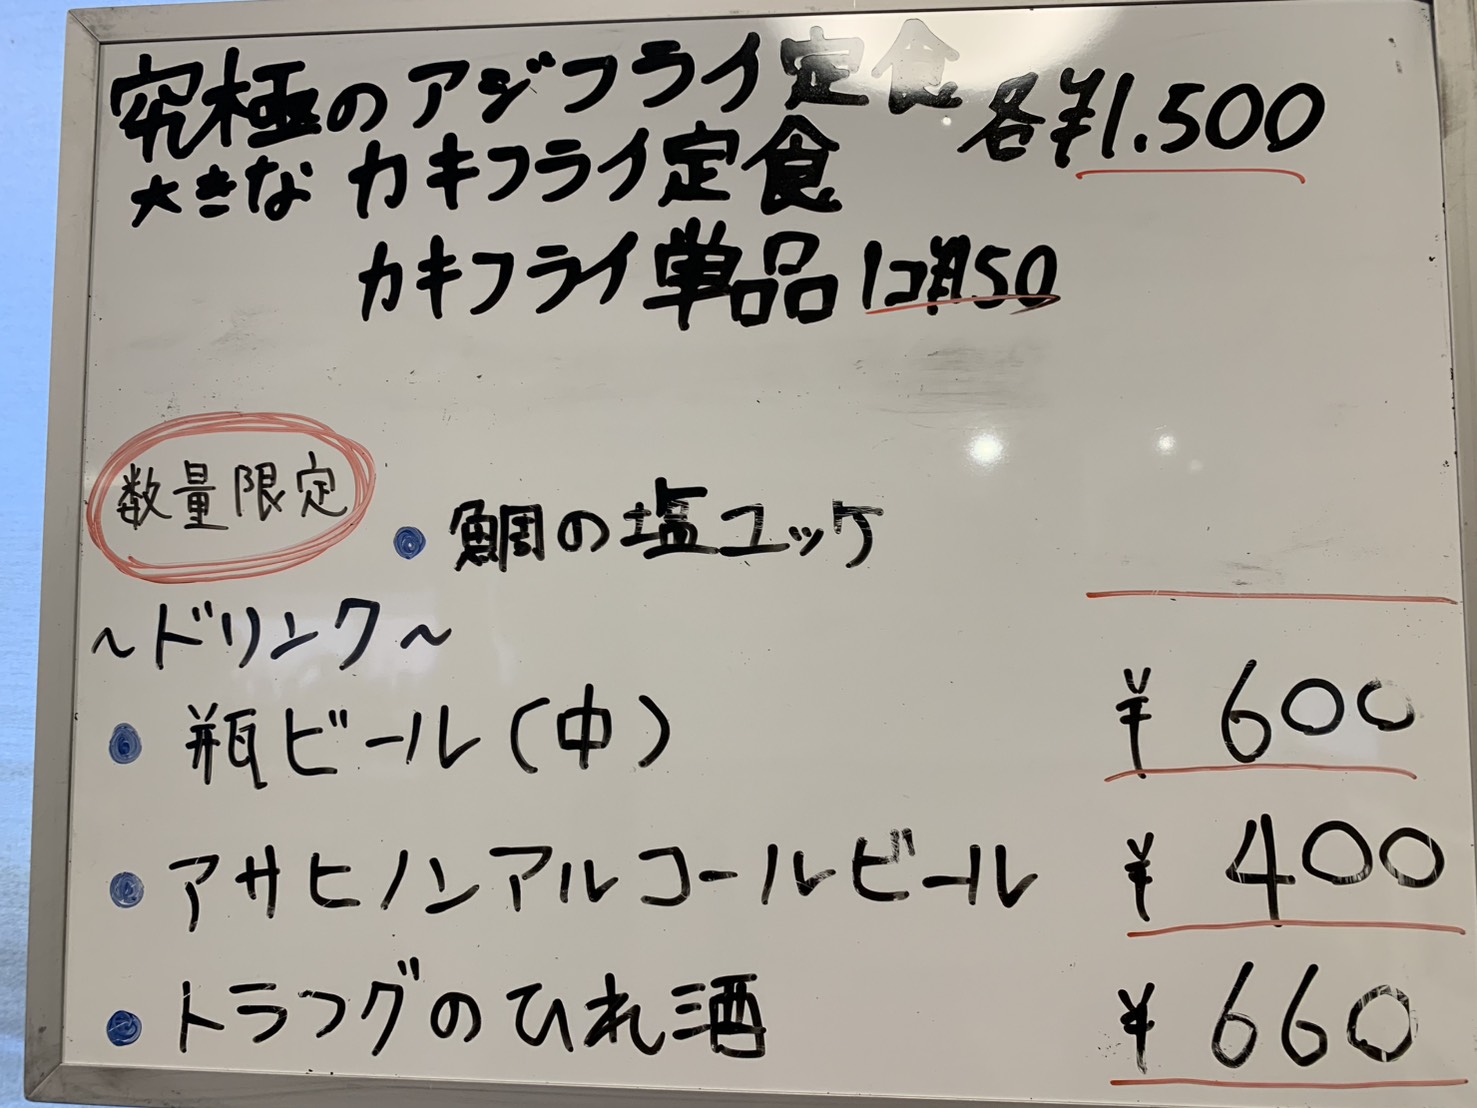 究極のアジフライ定食 各¥1.500
大きなカキフライ定食
カキフライ単品 1コ
数量限定
• 鯛の塩ユッケ
~ドリンク~
• 瓶ビール(中) ¥ 600
• アサヒノンアルコールビール ¥ 400
• トラフグのひれ酒 ¥ 660